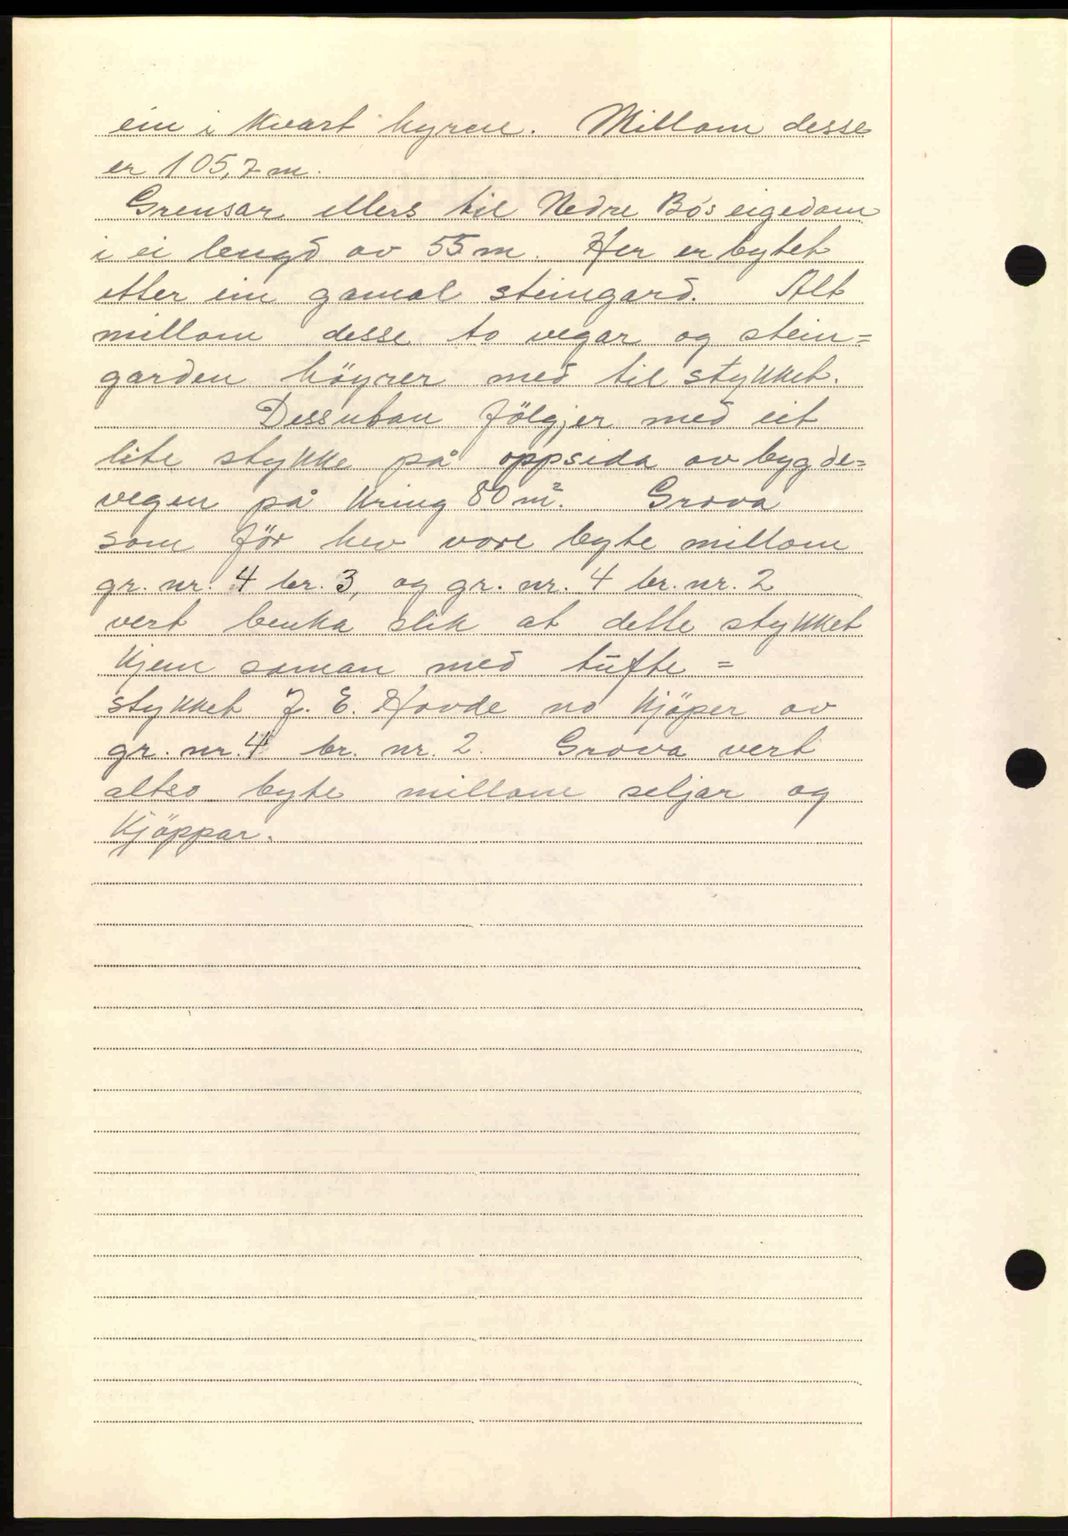 ein i kvart hyrne. Millom desse
er 105,7 m.
Grensar ellers til Nedre Bó's eigedom
i ei lengd av 55 m. Her er bytet
etter ein gamal steingard. Alt
millom desse to vegar og stein=
garden höyrer med til stykket.
Dessutan fölgjer med eit
lite stykke på oppsida av bygde=
vegen på kring 80 m². Grova
som för hev vore byte millom
gr. nr. 4 br. 3, og gr. nr. 4 br. nr. 2
vert benka slik at dette stykket
kjem saman med tufte=
stykket J. E. Hovde no kjöper av
gr. nr. 4 br. nr. 2. Grova vert
altso byte millom seljar og
kjöppar.